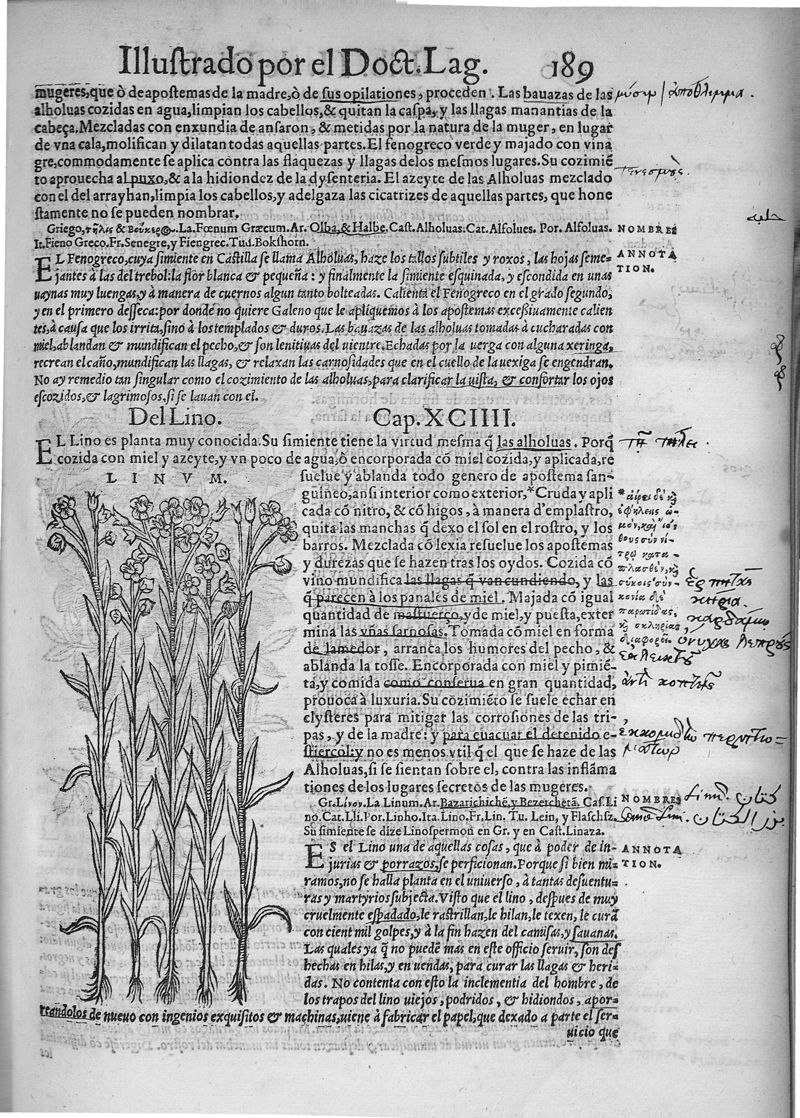 Illustrado por el Doct. Lag. 189
mugeres, que ò de apostemas de la madre, ò de sus opilationes, proceden. Las bauazas de las
alholuas cozidas en agua, limpian los cabellos, & quitan la caspa, y las llagas manantias de la
cabeça. Mezcladas con enxundia de ansaron, & metidas por la natura de la muger, en lugar
de vna cala, molifican y dilatan todas aquellas partes. El fenogreco verde y majado con vina
gre, commodamente se aplica contra las flaquezas y llagas delos mesmos lugares. Su cozimiẽ
to aprouecha al puxo, & a la hidiondez de la dysenteria. El azeyte de las Alholuas mezclado
con el del arrayhan, limpia los cabellos, y adelgaza las cicatrizes de aquellas partes, que hone
stamente no se pueden nombrar.
Griego, τῆλις & Βούκερως. La. Fœnum Græcum. Ar. Olba, & Halbe. Cast. Alholuas. Cat. Alfolues. Por. Alfouas.
It. Fieno Greco. Fr. Senegre, y Fiengrec. Tud. Bokshorn.
NOMBRES
حلبه
EL Fenogreco, cuya simiente en Castilla se llama Alholuas, haze los tallos subtiles y roxos, las hojas seme-
jantes à las del trebol: la flor blanca & pequeña: y finalmente la simiente esquinada, y escondida en unas
uaynas muy luengas, y à manera de cuernos algun tanto bolteadas. Calienta el Fenogreco en el grado segundo,
y en el primero dessecca: por donde no quiere Galeno que le apliquemos à los apostemas excessiuamente calien
tes, à causa que los irrita, sino à los templados & duros. Las bauazas de las alholuas tomadas à cucharadas con
miel, ablandan & mundifican el pecho, & son lenitiuas del uientre. Echadas por la uerga con alguna xeringa,
recrean el caño, mundifican las llagas, & relaxan las carnosidades que en el cuello de la uexiga se engendran.
No ay remedio tan singular como el cozimiento de las alholuas, para clarificar la uista, & confortar los ojos
escozidos, & lagrimosos, si se lauan con el.
ANNOTA
TION.
Del Lino. Cap. XCIIII.
EL Lino es planta muy conocida. Su simiente tiene la virtud mesma q̃ las alholuas. Porq̃
cozida con miel y azeyte, y vn poco de agua, ò encorporada cõ miel cozida, y aplicada, re
LINVM.
suelue y ablanda todo genero de apostema san-
guineo, ansi interior como exterior. *Cruda y apli
cada cõ nitro, & cõ higos, à manera d'emplastro,
quita las manchas q̃ dexo el sol en el rostro, y los
barros. Mezclada cõ lexia resuelue los apostemas
y durezas que se hazen tras los oydos. Cozida cõ
vino mundifica las llagas q̃ van cundiendo, y las
q̃ parecen à los panales de miel. Majada cõ igual
quantidad de mastuerço, y de miel, y puesta, exter
mina las vñas sarnosas. Tomada cõ miel en forma
de lamedor, arranca los humores del pecho, &
ablanda la tosse. Encorporada con miel y pimiẽ
ta, y comida como conserua en gran quantidad,
prouoca à luxuria. Su cozimiẽto se suele echar en
clysteres para mitigar las corrosiones de las tri-
pas, y de la madre: y para euacuar el detenido e-
stiercol: y no es menos vtil q̃ el que se haze de las
Alholuas, si se sientan sobre el, contra las inflãma
tiones de los lugares secretos de las mugeres.
Gr. Λίνον. La Linum. Ar. Bazarichiche, y Bezercheta. Cas. Li
no. Cat. Lli. Por. Linho. Ita. Lino. Fr. Lin. Tu. Lein, y Flaschsz.
Su simiente se dize Linospermon en Gr. y en Cast. Linaza.
NOMBRES
كتان
بزر الكتان
ES el Lino una de aquellas cosas, que à poder de in-
jurias & porrazos, se perficionan. Porque si bien mi-
ramos, no se halla planta en el uniuerso, à tantas desuentu-
ras y martyrios subjecta. Visto que el lino, despues de muy
cruelmente espadado, le rastrillan, le hilan, le texen, le curã
con cient mil golpes, y à la fin hazen del camisas, y sauanas.
Las quales ya q̃ no puedẽ mas en este officio seruir, son des
hechas en hilas, y en uendas, para curar las llagas & heri-
das. No contenta con esto la inclementia del hombre, de
los trapos del lino uiejos, podridos, & hidiondos, apor-
reandolos de nueuo con ingenios exquisitos & machinas, uiene à fabricar el papel, que dexado a parte el ser-
uicio que
ANNOTA
TION.